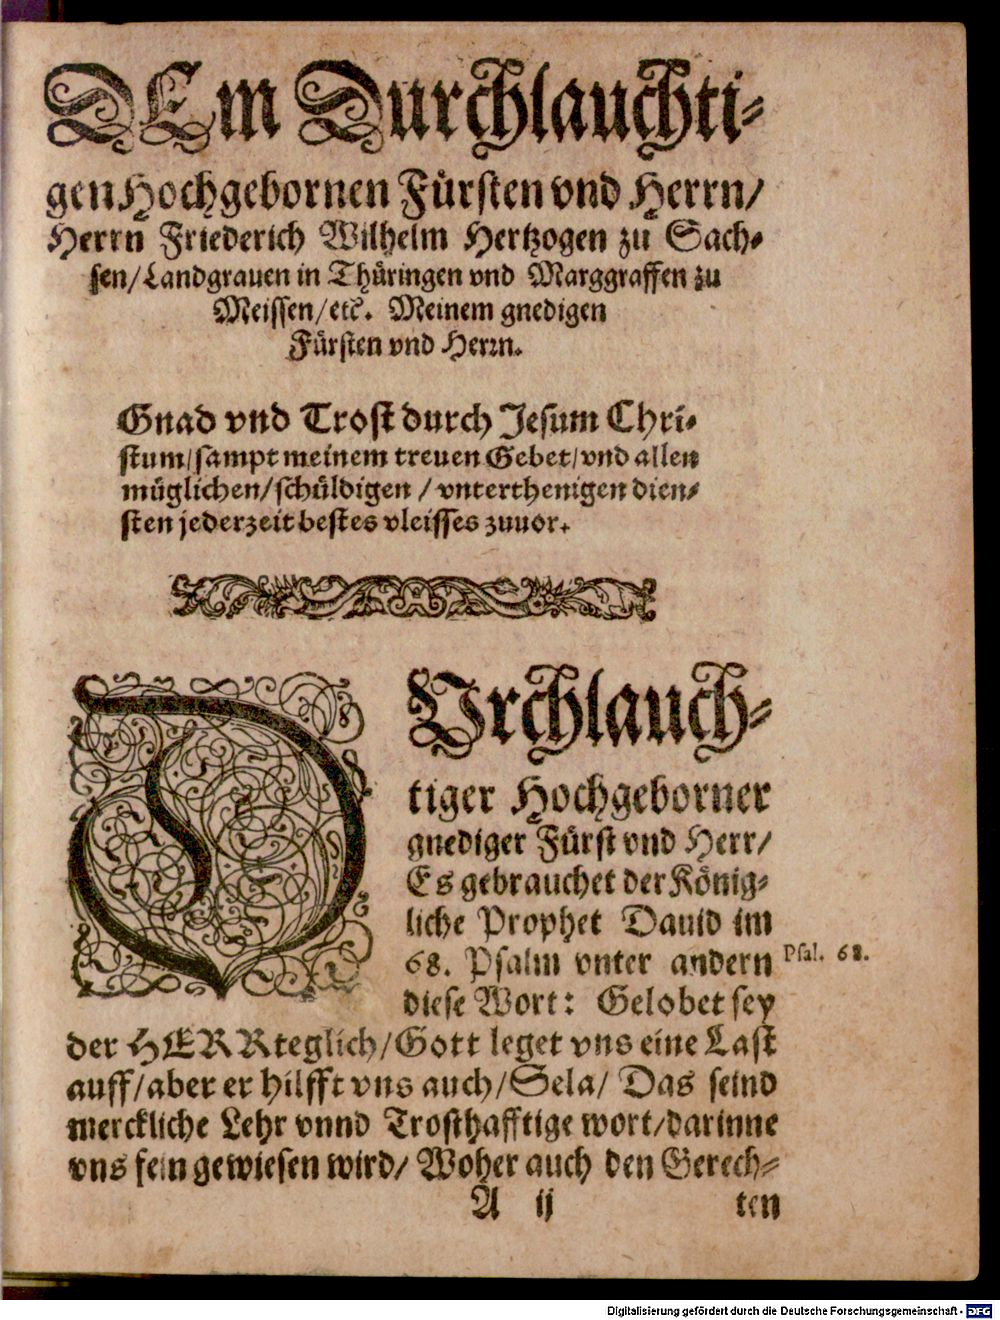 DEm Durchlauchti-
gen Hochgebornen Fürsten vnd Herrn/
Herrn Friederich Wilhelm Hertzogen zu Sach-
sen/Landgrauen in Thüringen vnd Marggraffen zu
Meissen/etc. Meinem gnedigen
Fürsten vnd Herrn.
Gnad vnd Trost durch Jesum Chri-
stum/sampt meinem treuen Gebet/vnd allen
müglichen/schüldigen/vnterthenigen dien-
sten jederzeit bestes vleisses zuuor.
DVrchlauch-
tiger Hochgeborner
gnediger Fürst vnd Herr/
Es gebrauchet der König-
liche Prophet Dauid im
68. Psalm vnter andern Psal. 68.
diese Wort: Gelobet sey
der HERR teglich/Gott leget vns eine Last
auff/aber er hilfft vns auch/Sela/ Das seind
merckliche Lehr vnnd Trosthafftige wort/darinne
vns fein gewiesen wird/ Woher auch den Gerech-
A ij ten
Digitalisierung gefördert durch die Deutsche Forschungsgemeinschaft - DFG